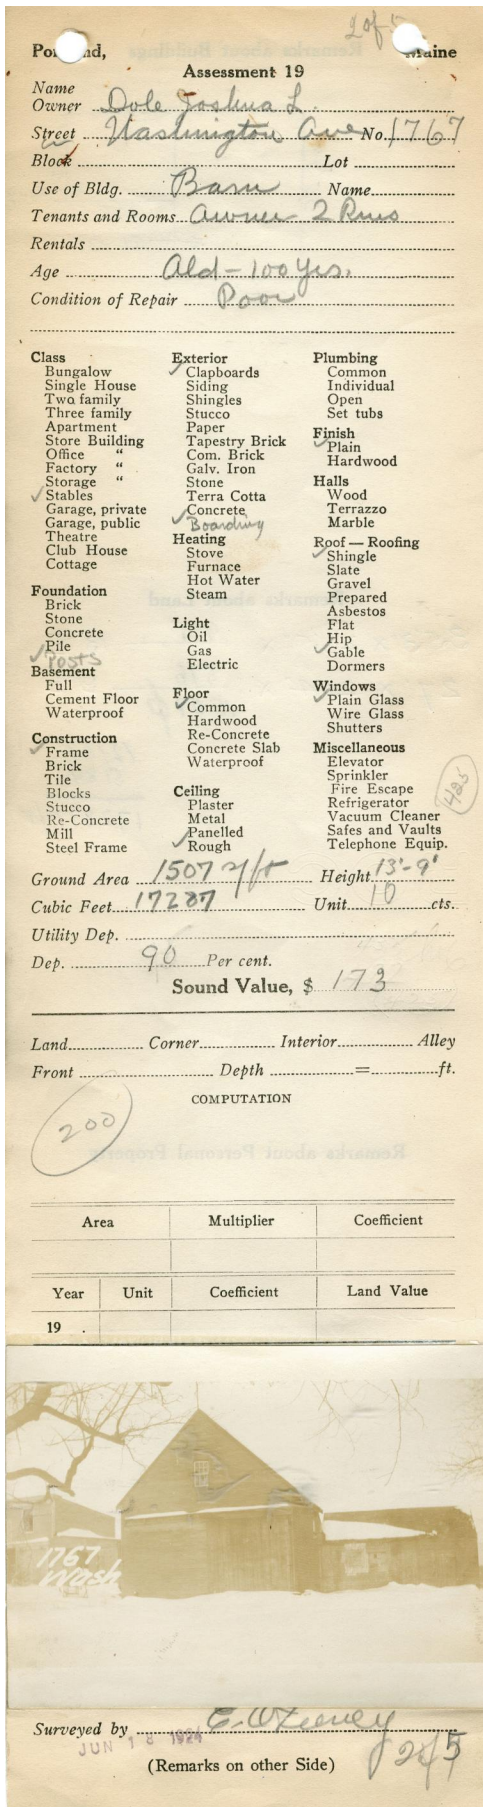 2 of 5
Portland, Maine
Assessment 19
Name
Owner Dole Joshua L.
Street Washington Ave No. 1767
Block Lot
Use of Bldg. Barn Name
Tenants and Rooms Owner 2 Rms
Rentals
Age Old - 100 yrs.
Condition of Repair Poor
Class
Bungalow
Single House
Two family
Three family
Apartment
Store Building
Office "
Factory "
Storage "
✓ Stables
Garage, private
Garage, public
Theatre
Club House
Cottage
Foundation
Brick
Stone
Concrete
Pile
✓ Posts
Basement
Full
Cement Floor
Waterproof
Construction
✓ Frame
Brick
Tile
Blocks
Stucco
Re-Concrete
Mill
Steel Frame
Exterior
✓ Clapboards
Siding
Shingles
Stucco
Paper
Tapestry Brick
Com. Brick
Galv. Iron
Stone
Terra Cotta
Concrete
✓ Boarding
Heating
Stove
Furnace
Hot Water
Steam
Light
Oil
Gas
Electric
Floor
✓ Common
Hardwood
Re-Concrete
Concrete Slab
Waterproof
Ceiling
Plaster
Metal
Panelled
✓ Rough
Plumbing
Common
Individual
Open
Set tubs
Finish
✓ Plain
Hardwood
Halls
Wood
Terrazzo
Marble
Roof — Roofing
✓ Shingle
Slate
Gravel
Prepared
Asbestos
Flat
Hip
✓ Gable
Dormers
Windows
✓ Plain Glass
Wire Glass
Shutters
Miscellaneous
Elevator
Sprinkler
Fire Escape
Refrigerator
Vacuum Cleaner
Safes and Vaults
Telephone Equip.
425
Ground Area 1507 sq/ft Height 13'-9'
Cubic Feet 17287 Unit 10 cts.
Utility Dep.
Dep. 90 Per cent.
Sound Value, $ 173
Land Corner Interior Alley
Front Depth = ft.
COMPUTATION
200
Area Multiplier Coefficient
Year Unit Coefficient Land Value
19 .
1767
Wash
Surveyed by
JUN 18 1924
2 of 5
(Remarks on other Side)